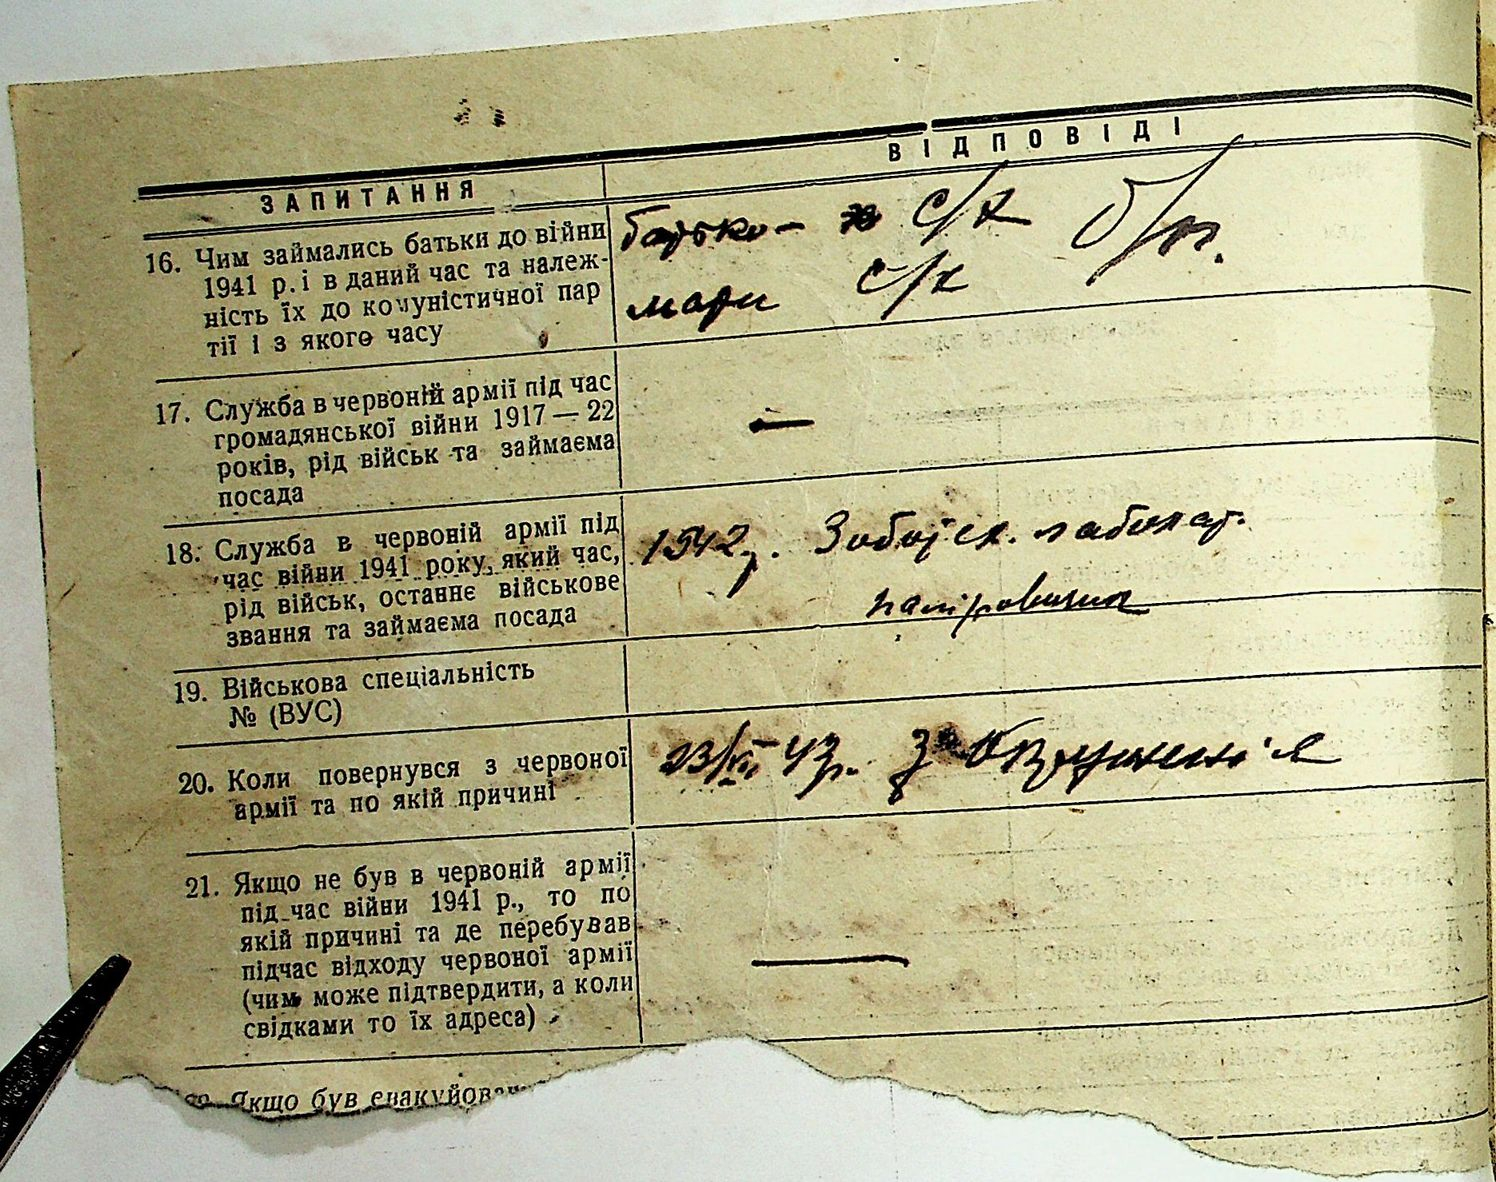 ЗАПИТАННЯ
ВІДПОВІДІ
16. Чим займались батьки до війни
1941 р. і в даний час та належ-
ність їх до комуністичної пар
тії і з якого часу
батько – с/х б/п.
мати с/х
17. Служба в червоній армії під час
громадянської війни 1917 — 22
років, рід військ та займаєма
посада
—
18. Служба в червоній армії під
час війни 1941 року, який час,
рід військ, останнє військове
звання та займаєма посада
1942р.
19. Військова спеціальність
№ (ВУС)
20. Коли повернувся з червоної
армії та по якій причині
23/VII 43р. з
21. Якщо не був в червоній армії
під час війни 1941 р., то по
якій причині та де перебував
підчас відходу червоної армії
(чим може підтвердити, а коли
свідками то їх адреса)
—
Якщо був евакуйован